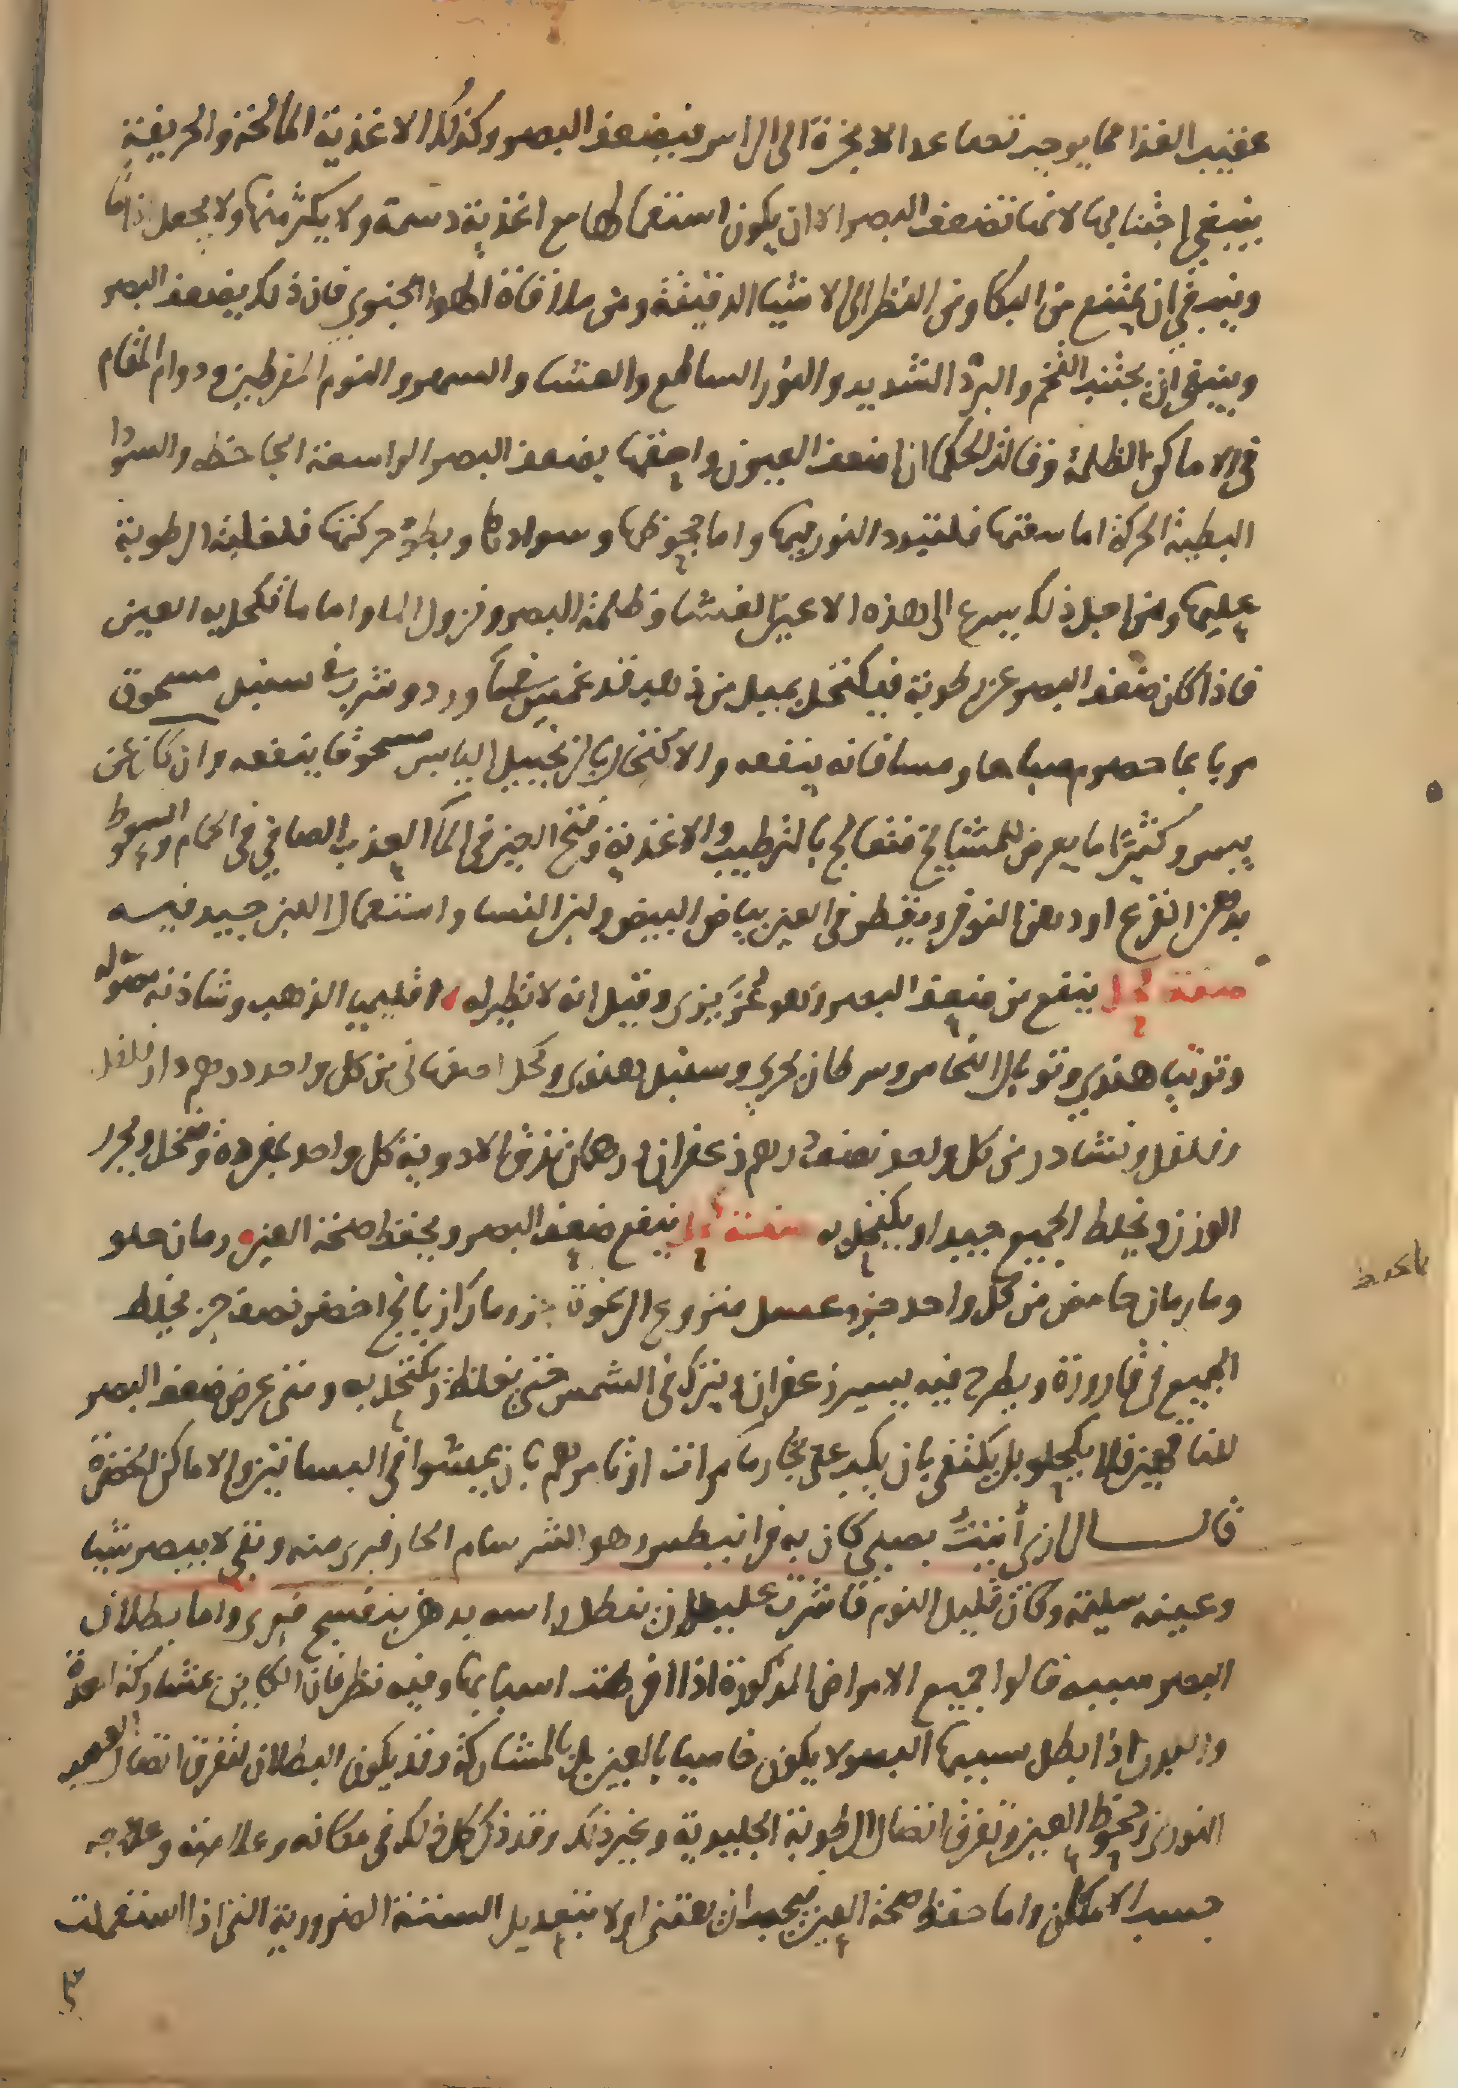 عقيب الغذا مما يوجب تصاعد الابخرة الى الراس فيضعف البصر وكذلك الاغذية المالحة والحريفة
ينبغي اجتنابها لانها تضعف البصر الا ان يكون استعمالها مع اغذية دسمة ولا يكثر منها ولا يجعل اداما
وينبغي ان يمتنع من البكا ومن النظر الى الاشيا الدقيقة ومن ملاقاة الهوا الجنوبي فان ذلك يضعف البصر
وينبغي ان يجتنب التخم والبرد الشديد والنور الساطع والعشا والسهر والنوم المفرطين ودوام المقام
في الاماكن الظلمة وقالت الحكما ان اضعف العيون واحقها بضعف البصر الواسعة الجاحظه والسودا
البطية الحركة اما سعتها فلتبدد النور فيها واما جحوظها وسوادها وبطؤ حركتها فلغلبة الرطوبة
عليها ومن اجل ذلك يسرع الى هذه الاعين الغشا وظلمة البصر ونزول الما واما ما تكحل به العين
فاذا كان ضعف البصر عن رطوبة فيكتحل بميل من ذهب قد غمس في ما ورد وشرب في سنبل مسحوق
مربا بما حصرم صباحا ومسا فانه ينفعه والاكتحال بالزنجبيل اليابس مسحوقا ينفعه وان كان عن
يبس وكثيرًا ما يعرض للمشايخ فتعالج بالترطيب والاغذية وفتح العين في الما العذب الصافي في الحمام والسعوط
بدهن القرع او دهن النوفر ويقطر في العين بياض البيض ولبن النسا واستعمال اللبن جيد فيه
صفة كحل ينفع من ضعف البصر وهو عزيزي وقيل انه لا نظير له اقليميا الذهب وشاذنه مغسوله
وتوتيا هندي وتوبال النحاس وسرطان بحري وسنبل هندي وكحل اصفهاني من كل واحد درهم دارفلفل
وفلفل ونشادر من كل واحد نصف درهم زعفران درهمان تدق الادوية كل واحد بمفرده وتنخل ويحرر
الوزن ويخلط الجميع جيدا ويكتحل به صفة ينفع ضعف البصر ويحفظ صحة العين رمان حلو
وما رمان حامض من كل واحد جزو عسل منزوع الرغوة جزو ما رازيانج اخضر نصف جز يخلط
الجميع في قارورة ويطرح فيه يسير زعفران ويترك في الشمس حتى يغلظ ويكتحل به ومتى عرض ضعف البصر
للناقهين فلا يكحلو بل يكتفي بان يكبو على بخار ما كرافت او تامرهم بان يمشوا في البساتين والاماكن الخضرة
قال الرازي أتيت بصبي كان به قرانيطس وهو السرسام الحار فبرى منه وبقي لا يبصر شيا
وعينه سليمة وكان قليل النوم فاشرت عليه ان يطل راسه بدهن بنفسج فبرى واما بطلان
البصر سببه قالوا جميع الامراض المذكورة اذا افرطت اسبابها وفيه نظر فان الكاين عن مشاركة المعدة
والبدن اذا بطل سببها البصر لا يكون خاصيا بالعين بل بالمشاركة وقد يكون البطلان لتفرق اتصال العصب
النوري وجحوظ العين وتفرق اتصال الرطوبة الجليدية وغير ذلك وقد ذكر كل ذلك في مكانه وعلامته وعلاجه
حسب الامكان واما حفظ صحة العين فيجب ان يعتنى اولا بتعديل الستة الضرورية التي اذا استعملت